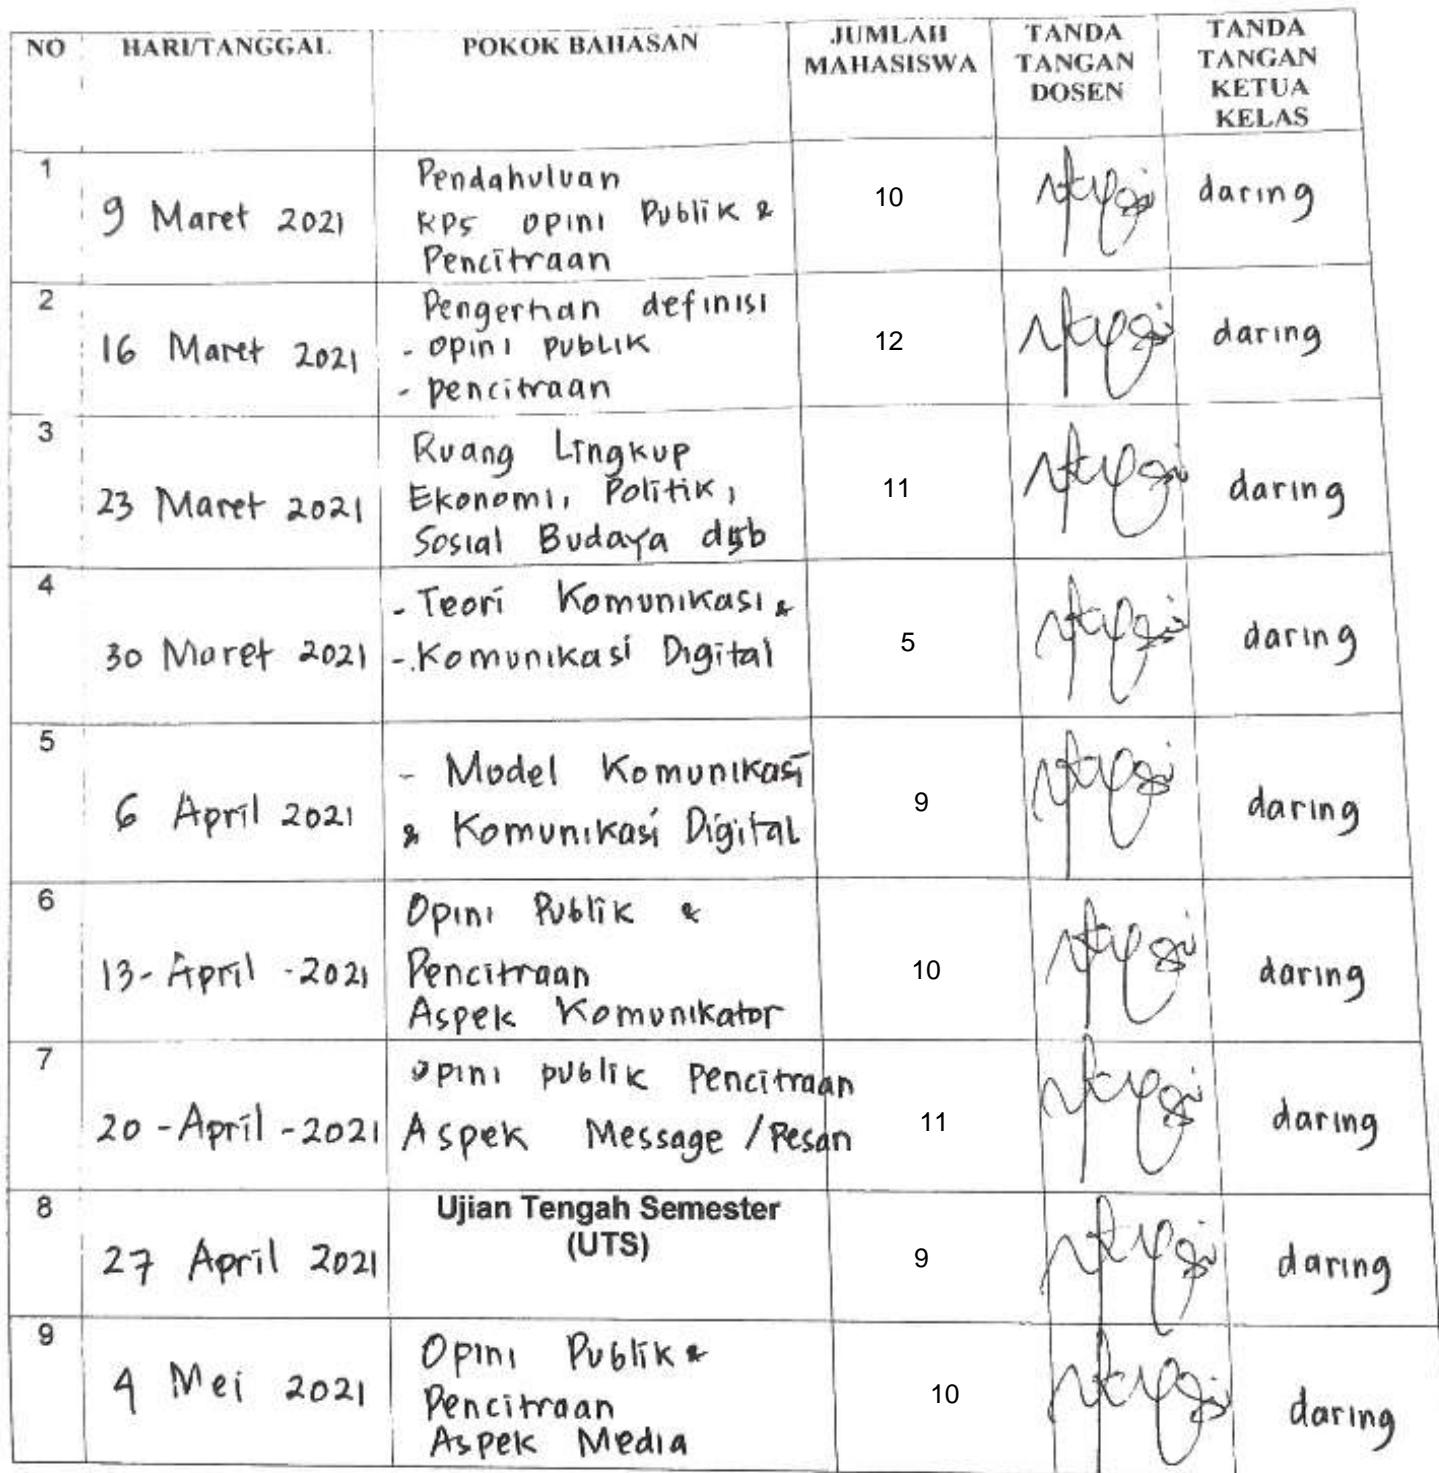 NO HARI/TANGGAL POKOK BAHASAN JUMLAH MAHASISWA TANDA TANGAN DOSEN TANDA TANGAN KETUA KELAS
1
9 Maret 2021
Pendahuluan
RPS Opini Publik &
Pencitraan
10
daring
2
16 Maret 2021
Pengertian definisi
- opini publik
- pencitraan
12
daring
3
23 Maret 2021
Ruang Lingkup
Ekonomi, Politik,
Sosial Budaya dsb
11
daring
4
30 Maret 2021
- Teori Komunikasi &
- Komunikasi Digital
5
daring
5
6 April 2021
- Model Komunikasi
& Komunikasi Digital
9
daring
6
13-April-2021
Opini Publik &
Pencitraan
Aspek Komunikator
10
daring
7
20-April-2021
opini publik Pencitraan
Aspek Message / Pesan
11
daring
8
27 April 2021
Ujian Tengah Semester
(UTS)
9
daring
9
4 Mei 2021
Opini Publik &
Pencitraan
Aspek Media
10
daring